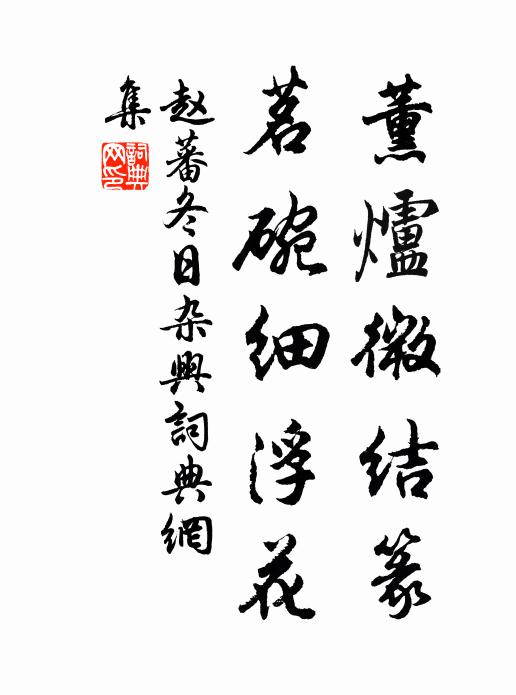 薰爐微结篆
茗碗细浮花
赵蕃冬日杂興詞典網
集
詞典网印